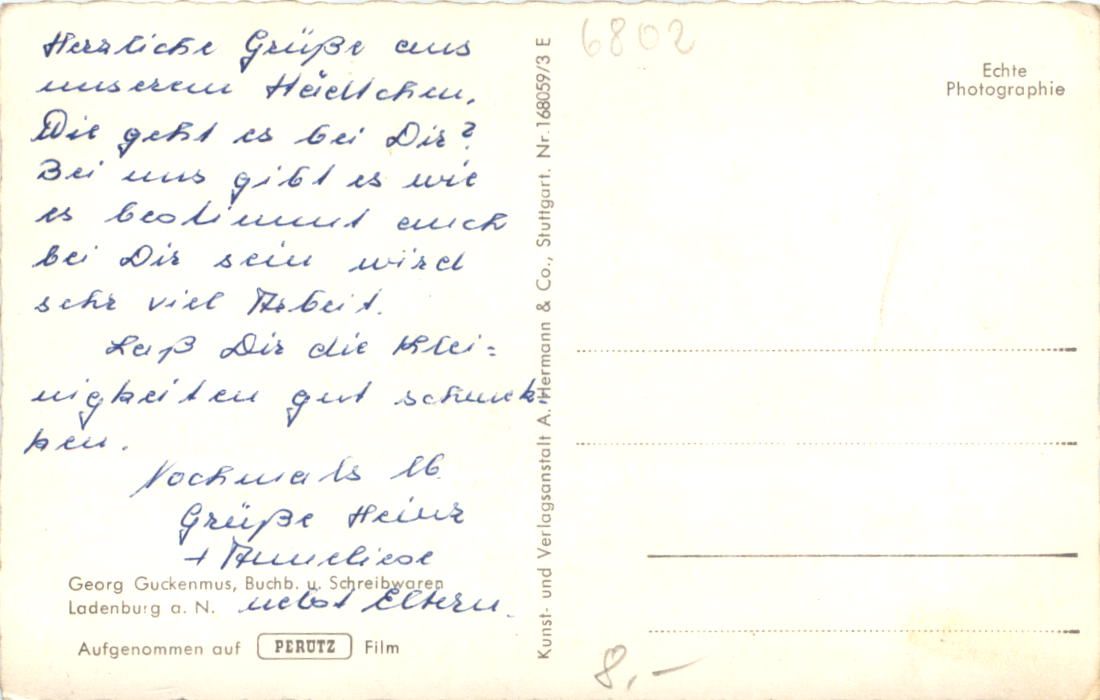 Herzliche Grüße aus
unserem Städtchen.
Wie geht es bei Dir?
Bei uns gibt es wie
es bestimmt auch
bei Dir sein wird
sehr viel Arbeit.
Laß Dir die Klei=
nigkeiten gut schmek-
ken.
Nochmals lb.
Grüße Heinz
+ Anneliese
nebst Eltern.
Georg Guckenmus, Buchb. u. Schreibwaren
Ladenburg a. N.
Aufgenommen auf PERUTZ Film
Kunst- und Verlagsanstalt A. Hermann & Co., Stuttgart. Nr. 168059/3 E
6802
Echte
Photographie
8,-